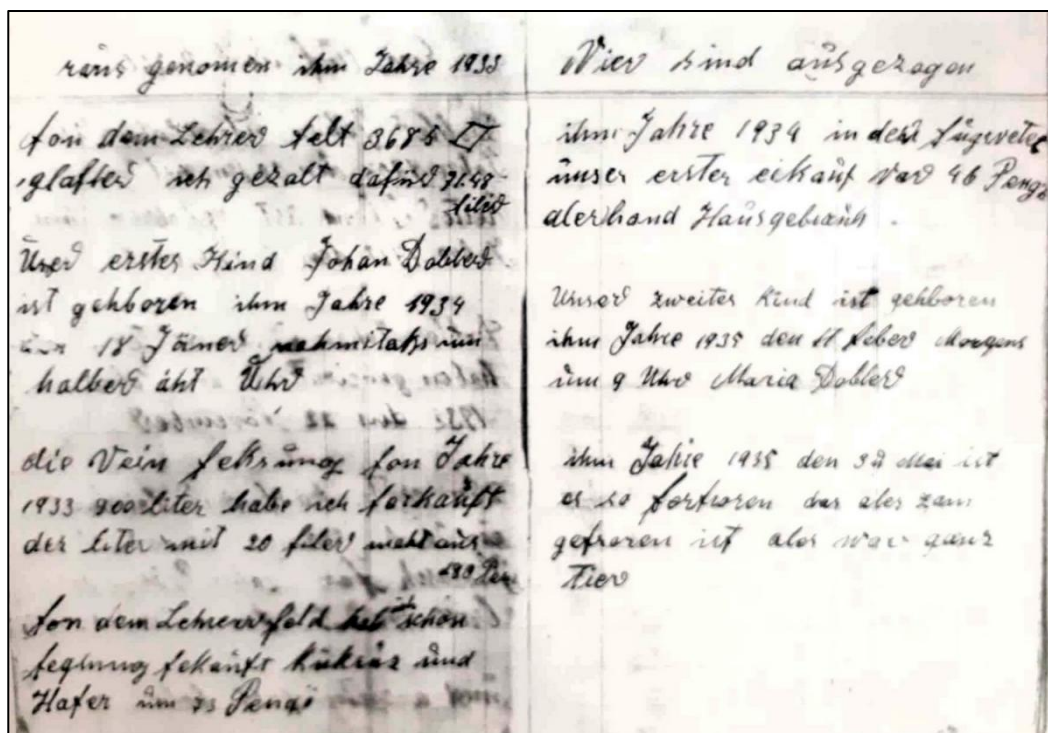 raus genomen ihm Jahre 1933
fon dem Lehrer felt 3685
glafter ich gezalt dafür 91.48
filer
Unser erstes Kind Johan Dobler
ist gehboren ihm Jahre 1934
18 Jäner nahmitaks um
halber äht Uhr
die Vein feksung fon Jahre
1933 900 liter habe ich forkauft
der liter mit 20 filer macht aus
180 Pen
fon dem Lehrer feld het ich schon
feksung fekauft kukruz und
Hafer um 73 Pengö
Vier sind ausgezogen
ihm Jahre 1934 in den
unser erster eikauf var 46 Pengö
alerhand Hausgebrauh.
Unser zweites Kind ist gehboren
ihm Jahre 1935 den 11 feber Morgens
um 9 Uhr Maria Dobler
ihm Jahre 1935 den Mai ist
es so forfroren das ales zam
gefroren ist ales war ganz
Tier